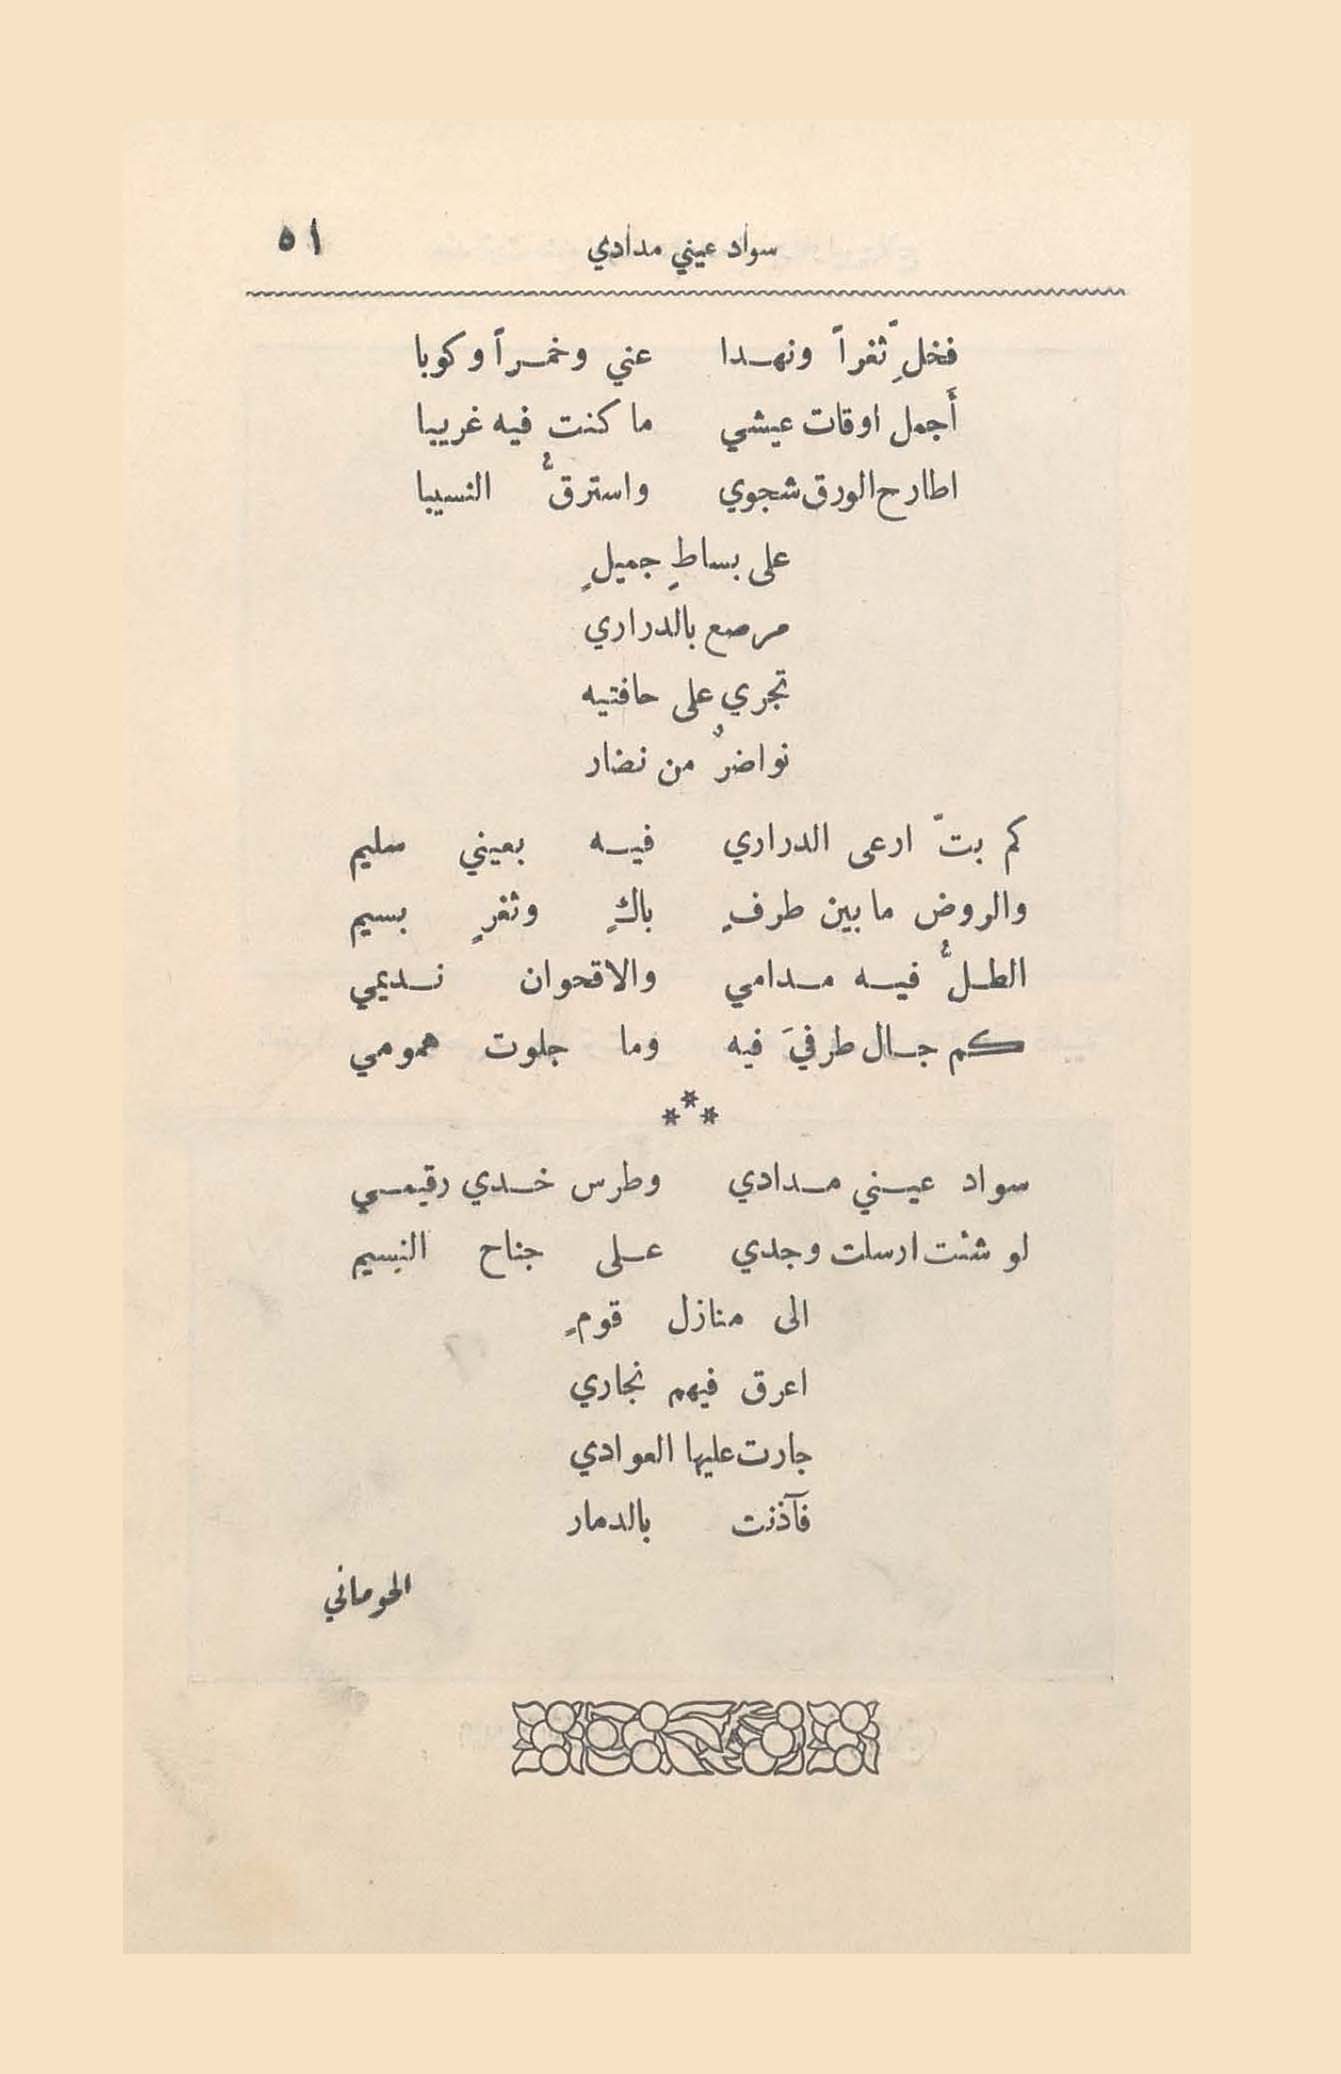 سواد عيني مدادي ٥١
فخلِّ ثغراً ونهدا عني وخمراً وكوبا
أجمل اوقات عيشي ما كنت فيه غريبا
اطارح الورق شجوي واسترقُّ النسيبا
على بساطٍ جميلٍ
مرصع بالدراري
تجري على حافتيه
نواضرٌ من نضار
كم بتّ ارعى الدراري فيه بعيني سليم
والروض ما بين طرفٍ باكٍ وثغرٍ بسيم
الطلُّ فيه مدامي والاقحوان نديمي
كم جال طرفيَ فيه وما جلوت همومي
***
سواد عيني مدادي وطرس خدي رقيمي
لو شئت ارسلت وجدي على جناح النسيم
الى منازل قومٍ
اعرق فيهم نجاري
جارت عليها العوادي
فآذنت بالدمار
الحوماني